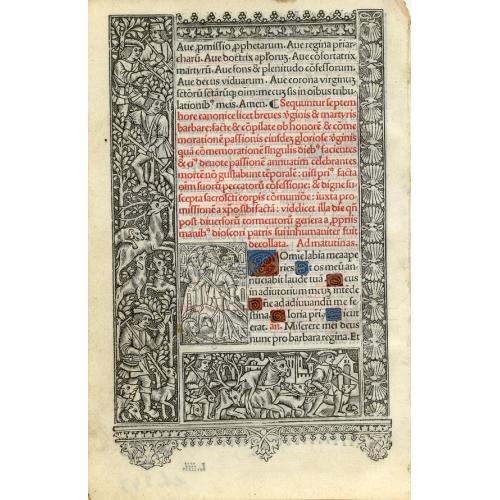 Aue ꝓmissio ꝓphetarum. Aue regina pr̄iar-
charū. Aue doctrix apl'orꝫ. Aue cōfortatrix
martyrū. Aue fons & plenitudo cōfessorum.
Aue decus viduarum. Aue corona virginuꝫ
sctōrū sctārūqꝫ oīm: mecuꝫ sis in oībus tribu-
lationibꝰ meis. Amen. ¶ Sequuntur septem
hore canonice licet breues v̄ginis & martyris
barbare: facte & cōpilate ob honorē & cōme
morationē passionis eiusdeꝫ gloriose v̄ginis
quā cōmemorationē singulis diebꝰ facientes
& eiꝰ deuote passionē annuatim celebrantes
mortē nō gustabunt tēporalē: nisi prꝰ facta
oīm suorū peccatorū cōfessione: & digne su-
scepta sacrosctī corpis cōmunioē: iuxta pro-
missionē a xp̄o sibi factā: videlicet illa die qn̄
post diuersorū tormentorū genera a ꝓpriis
manibꝰ dioscori patris sui inhumaniter fuit
decollata. Ad matutinas.
Domie labia mea ape
ries. Et os meū an-
nuciabit laudē tuā. Deus
in adiutorium meuꝫ intēde
Dn̄e ad adiuuandū me fe
stina. Gloria pr̄i. Sicut
erat. an. Miserere mei deus
nunc pro barbara regina. Et